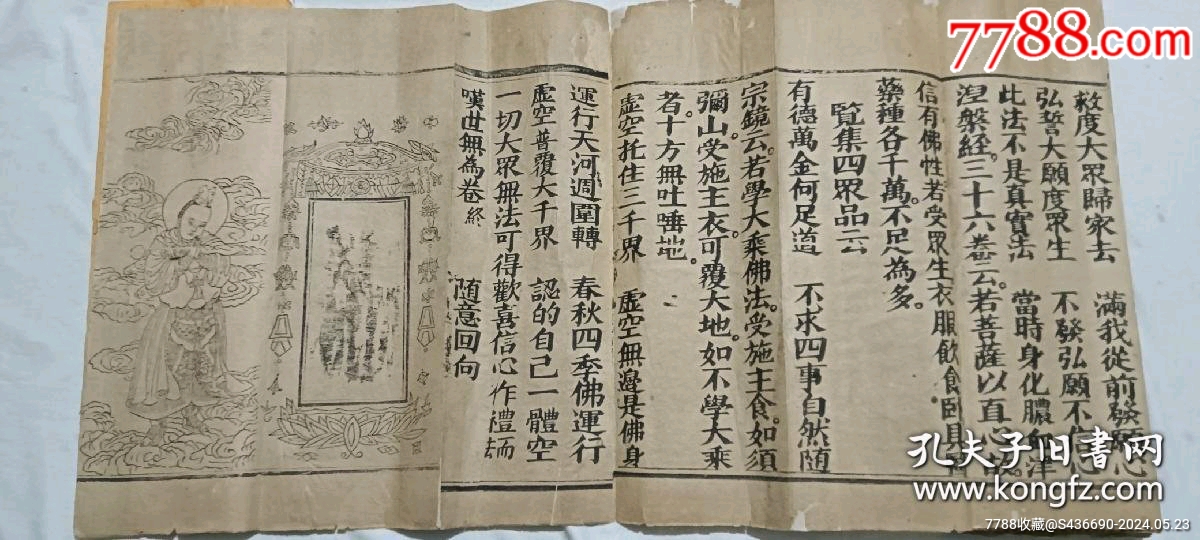 救度大眾歸家去 滿我從前發願心
弘誓大願度眾生 不發弘願不
此法不是真實法 當時身化膿
涅槃經三十六卷云若菩薩以直
信有佛性若受眾生衣服飲食卧具
藥種各千萬不足為多
覽集四眾品云
有德萬金何足道 不求四事自然隨
宗鏡云若學大乘佛法受施主食如須
彌山受施主衣可覆大地如不學大乘
者十方無吐唾地
虛空托住三千界 虛空無邊是佛身
運行天河週圍轉 春秋四季佛運行
虛空普覆大千界 認的自己一體空
一切大眾無法可得歡喜信心作禮而去
嘆世無為卷終 随意回向
7788.com
孔夫子旧书网
www.kongfz.com
7788收藏@S436690-2024.05.23